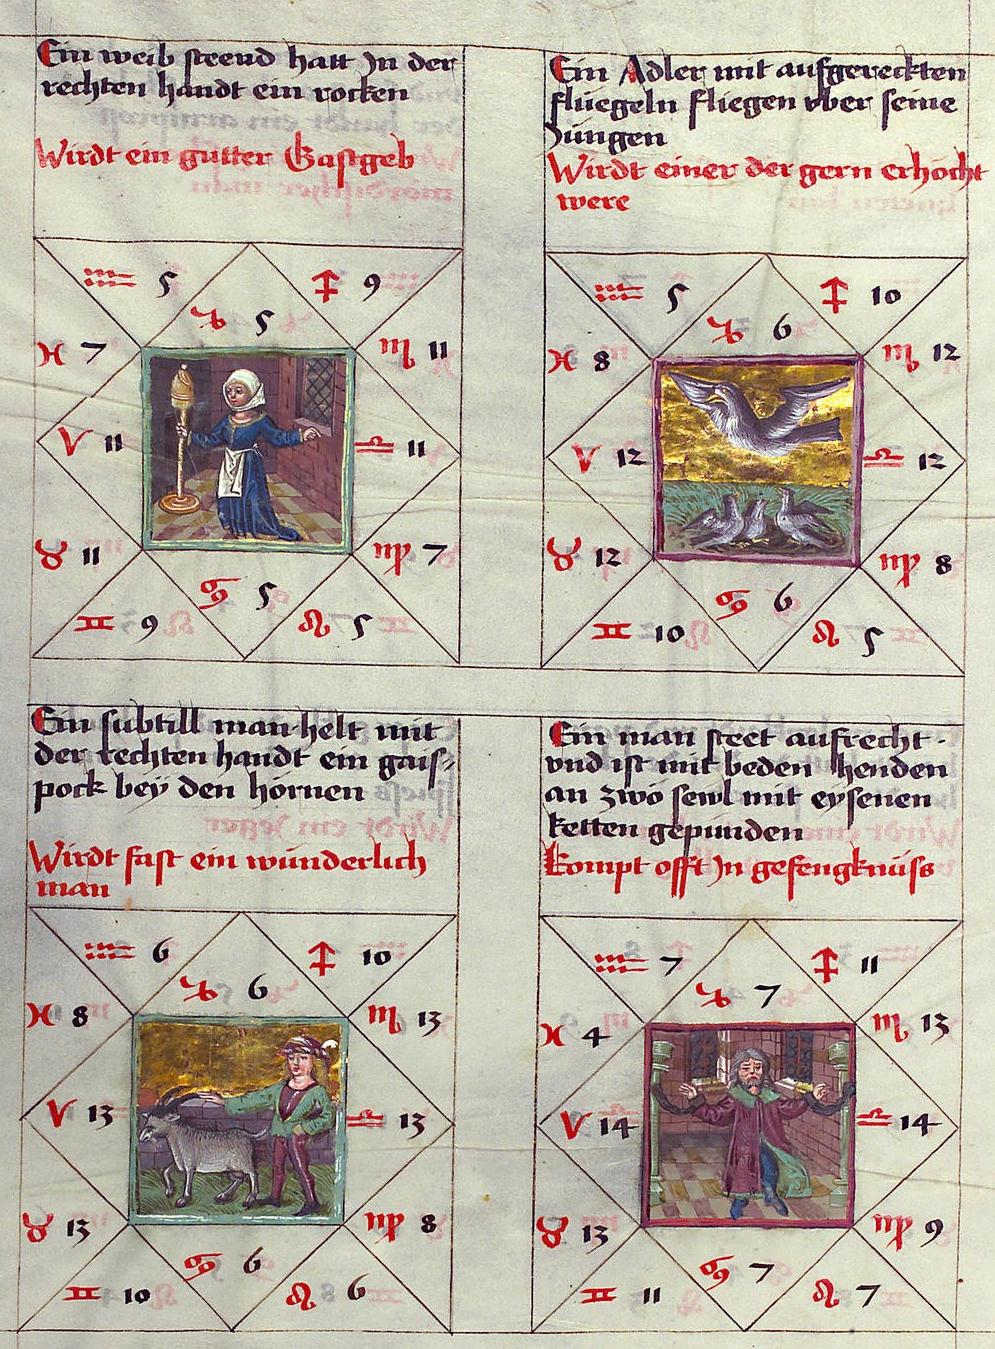 Ein weib steend hatt Jn der
rechten handt ein rocken
Wirdt ein gutter Gastgeb
♒ 5
♐ 9
♑ 5
♓ 7
♏ 11
♈ 11
♎ 11
♉ 11
♍ 7
♋ 5
♊ 9
♌ 5
Ein Adler mit aufgereckten
fluegeln fliegen vber seine
Jungen
Wirdt einer der gern erhocht
were
♒ 5
♐ 10
♑ 6
♓ 8
♏ 12
♈ 12
♎ 12
♉ 12
♍ 8
♋ 6
♊ 10
♌ 5
Ein subtill man helt mit
der rechten handt ein gais-
pock bey den hornen
Wirdt fast ein wunderlich
man
♒ 6
♐ 10
♑ 6
♓ 8
♏ 13
♈ 13
♎ 13
♉ 13
♍ 8
♋ 6
♊ 10
♌ 6
Ein man steet aufrecht ·
vnd ist mit beden henden
an zwo sewl mit eysenen
ketten gepunden
kompt offt Jn gefengknuss
♒ 7
♐ 11
♑ 7
♓ 4
♏ 13
♈ 14
♎ 14
♉ 13
♍ 9
♋ 7
♊ 11
♌ 7